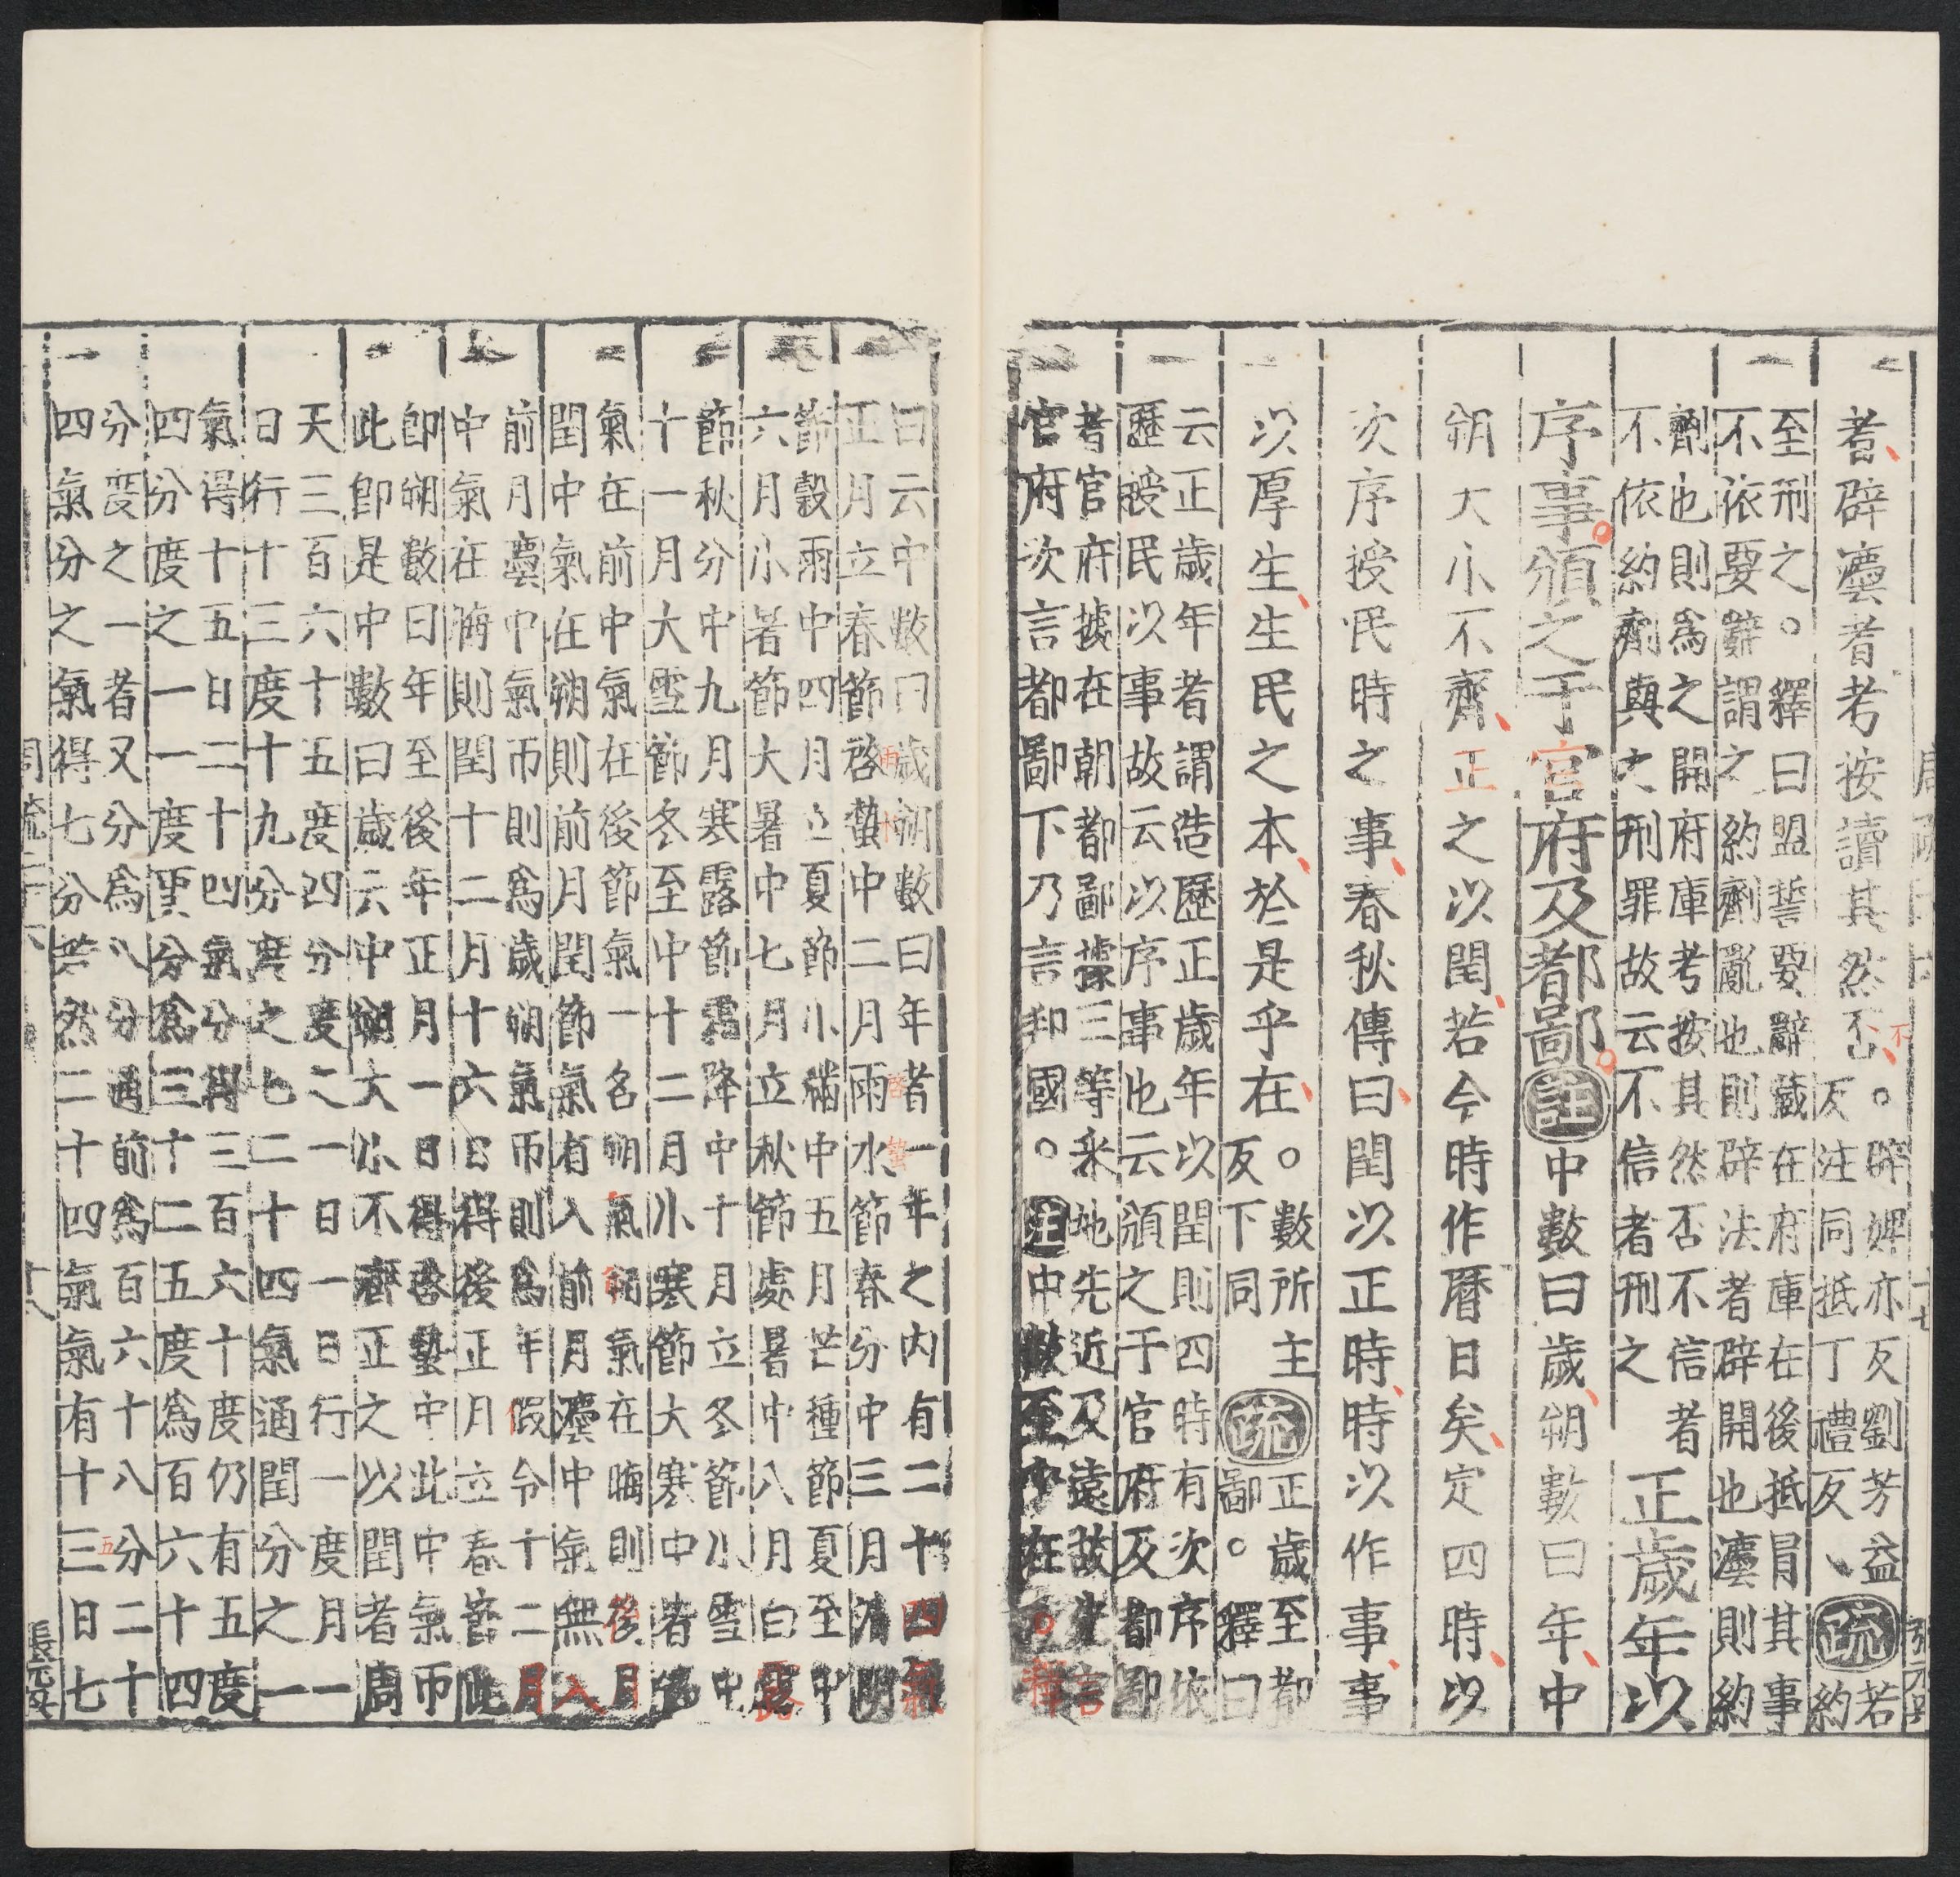 者辟灋者考按讀其然否。辟婢亦反劉芳益
反注同抵丁禮反、疏若
約
至刑之。釋曰盟誓要辭藏在府庫在後抵冒其事
不依要辭謂之約劑亂也則辟法者辟開也灋則約
劑也則爲之開府庫考按其然否不信者
不依約劑與之刑罪故云不信者刑之
正歲年以
序事頒之于官府及都鄙註中數曰歲朔數曰年中
朔大小不齊正之以閏若今時作曆日矣定四時以
次序授民時之事春秋傳曰閏以正時時以作事事
以厚生生民之本於是乎在。數所主
反下同
疏正歲至都
鄙。釋曰
云正歲年者謂造歷正歲年以閏則四時有次序依
歷授民以事故云以序事也云頒之于官府及都鄙
者官府據在朝都鄙據三等采地先近及遠故先言
官府次言都鄙下乃言邦國。注中數至乎在。釋
曰云中數曰歲朔數曰年者一年之內有二十四氣
正月立春節啓蟄中二月雨水節春分中三月清明
雨水
啓蟄
節穀雨中四月立夏節小滿中五月芒種節夏至中
六月小暑節大暑中七月立秋節處暑中八月白露
節秋分中九月寒露節霜降中十月立冬節小雪中
十一月大雪節冬至中十二月小寒節大寒中者皆
氣在前中氣在後節氣一名朔氣朔氣在晦則後月
閏中氣在朔則前月閏節氣有入前月灋中氣無入
前月灋中氣帀則爲歲朔氣帀則爲年假令十二月
中氣在晦則閏十二月十六日得後正月立春節此
即朔數曰年至後年正月一日得啓蟄中此中氣帀
此即是中數曰歲云中朔大小不齊正之以閏者周
天三百六十五度四分度之一日一日行一度月一
日行十三度十九分度之七二十四氣通閏分之一
氣得十五日二十四氣分得三百六十度仍有五度
四分度之一一度更分爲三十二五度爲百六十四
分度之一者又分爲八分通前爲百六十八分二十
四氣分之氣得七分若然二十四氣氣有十三日七
五
周疏二十六
十八